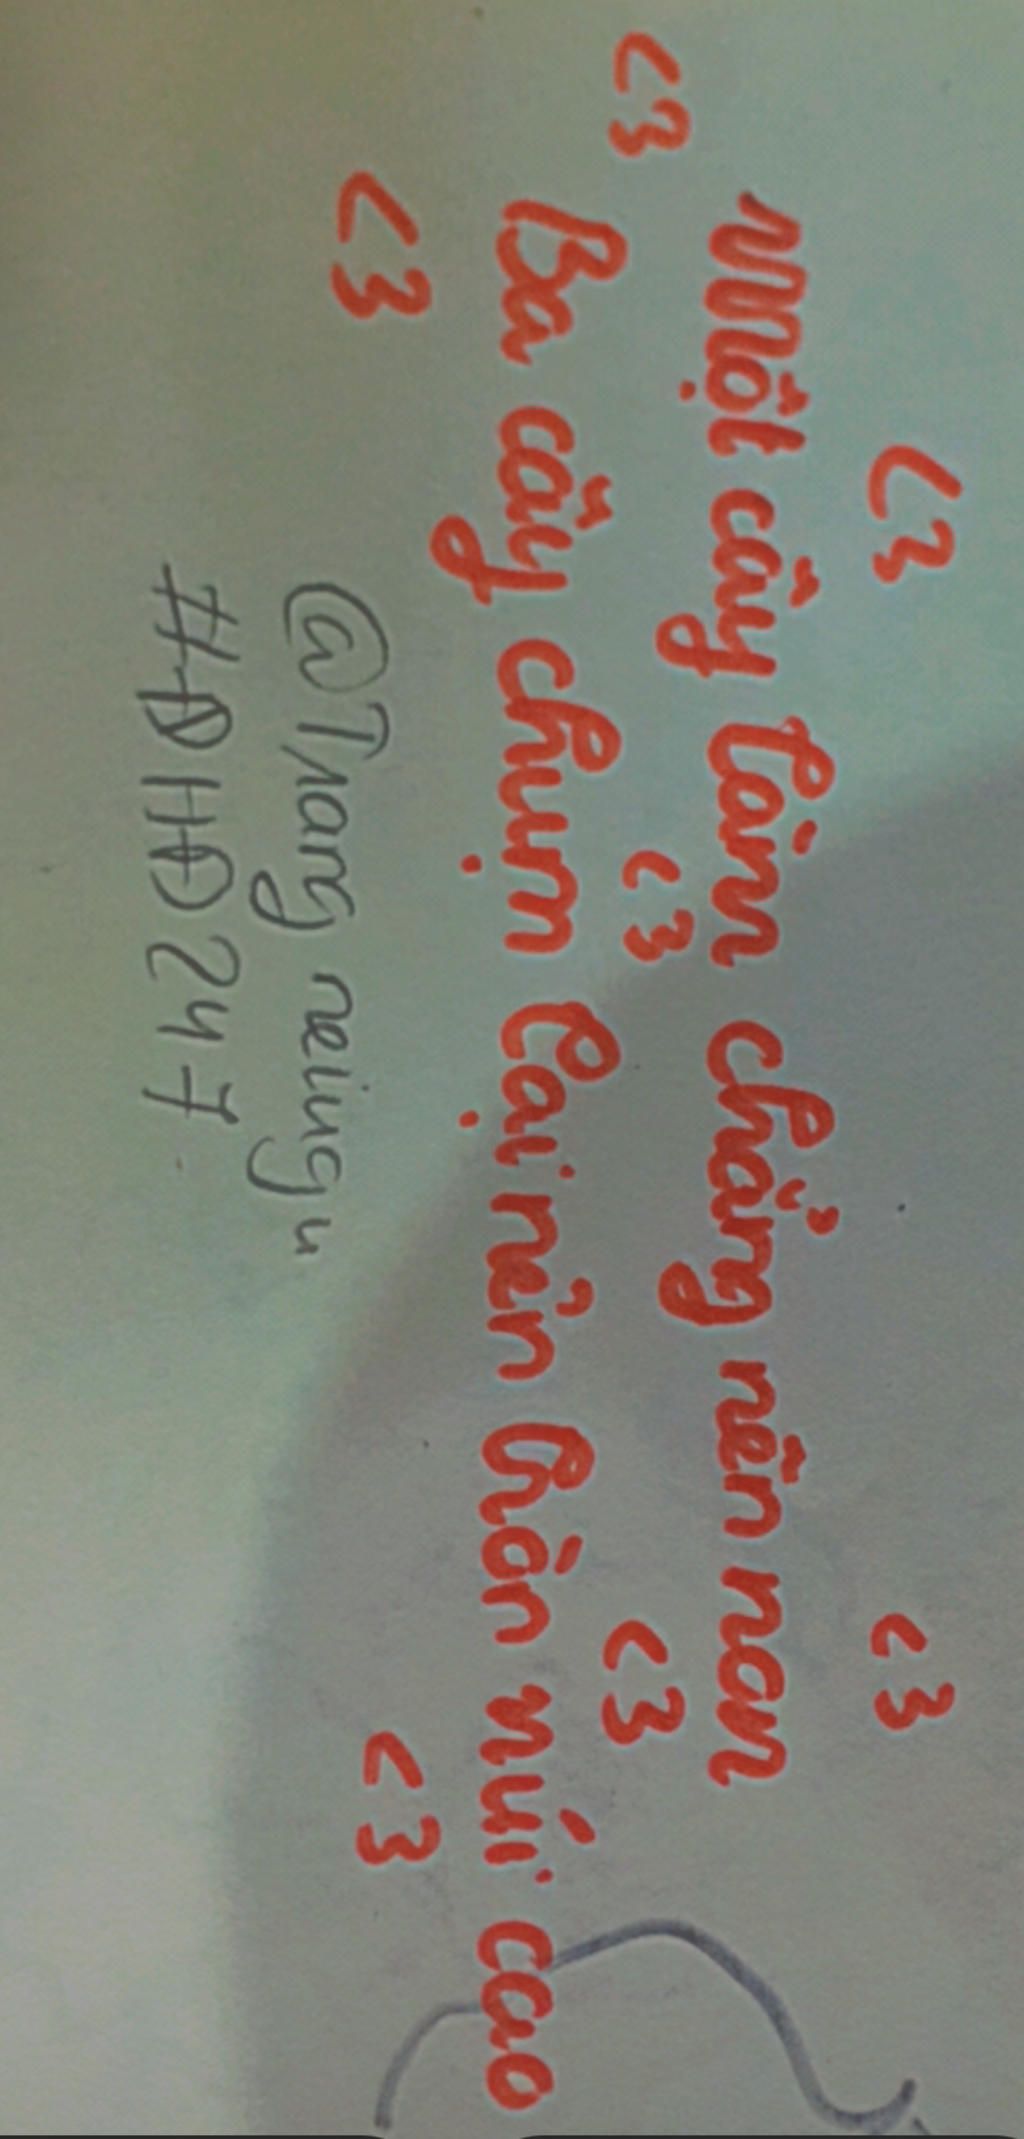 <3 <3
Một cây làm chẳng nên non
<3 <3 <3
Ba cây chụm lại nên hòn núi cao
<3 <3
@Trang
#ĐHĐ247